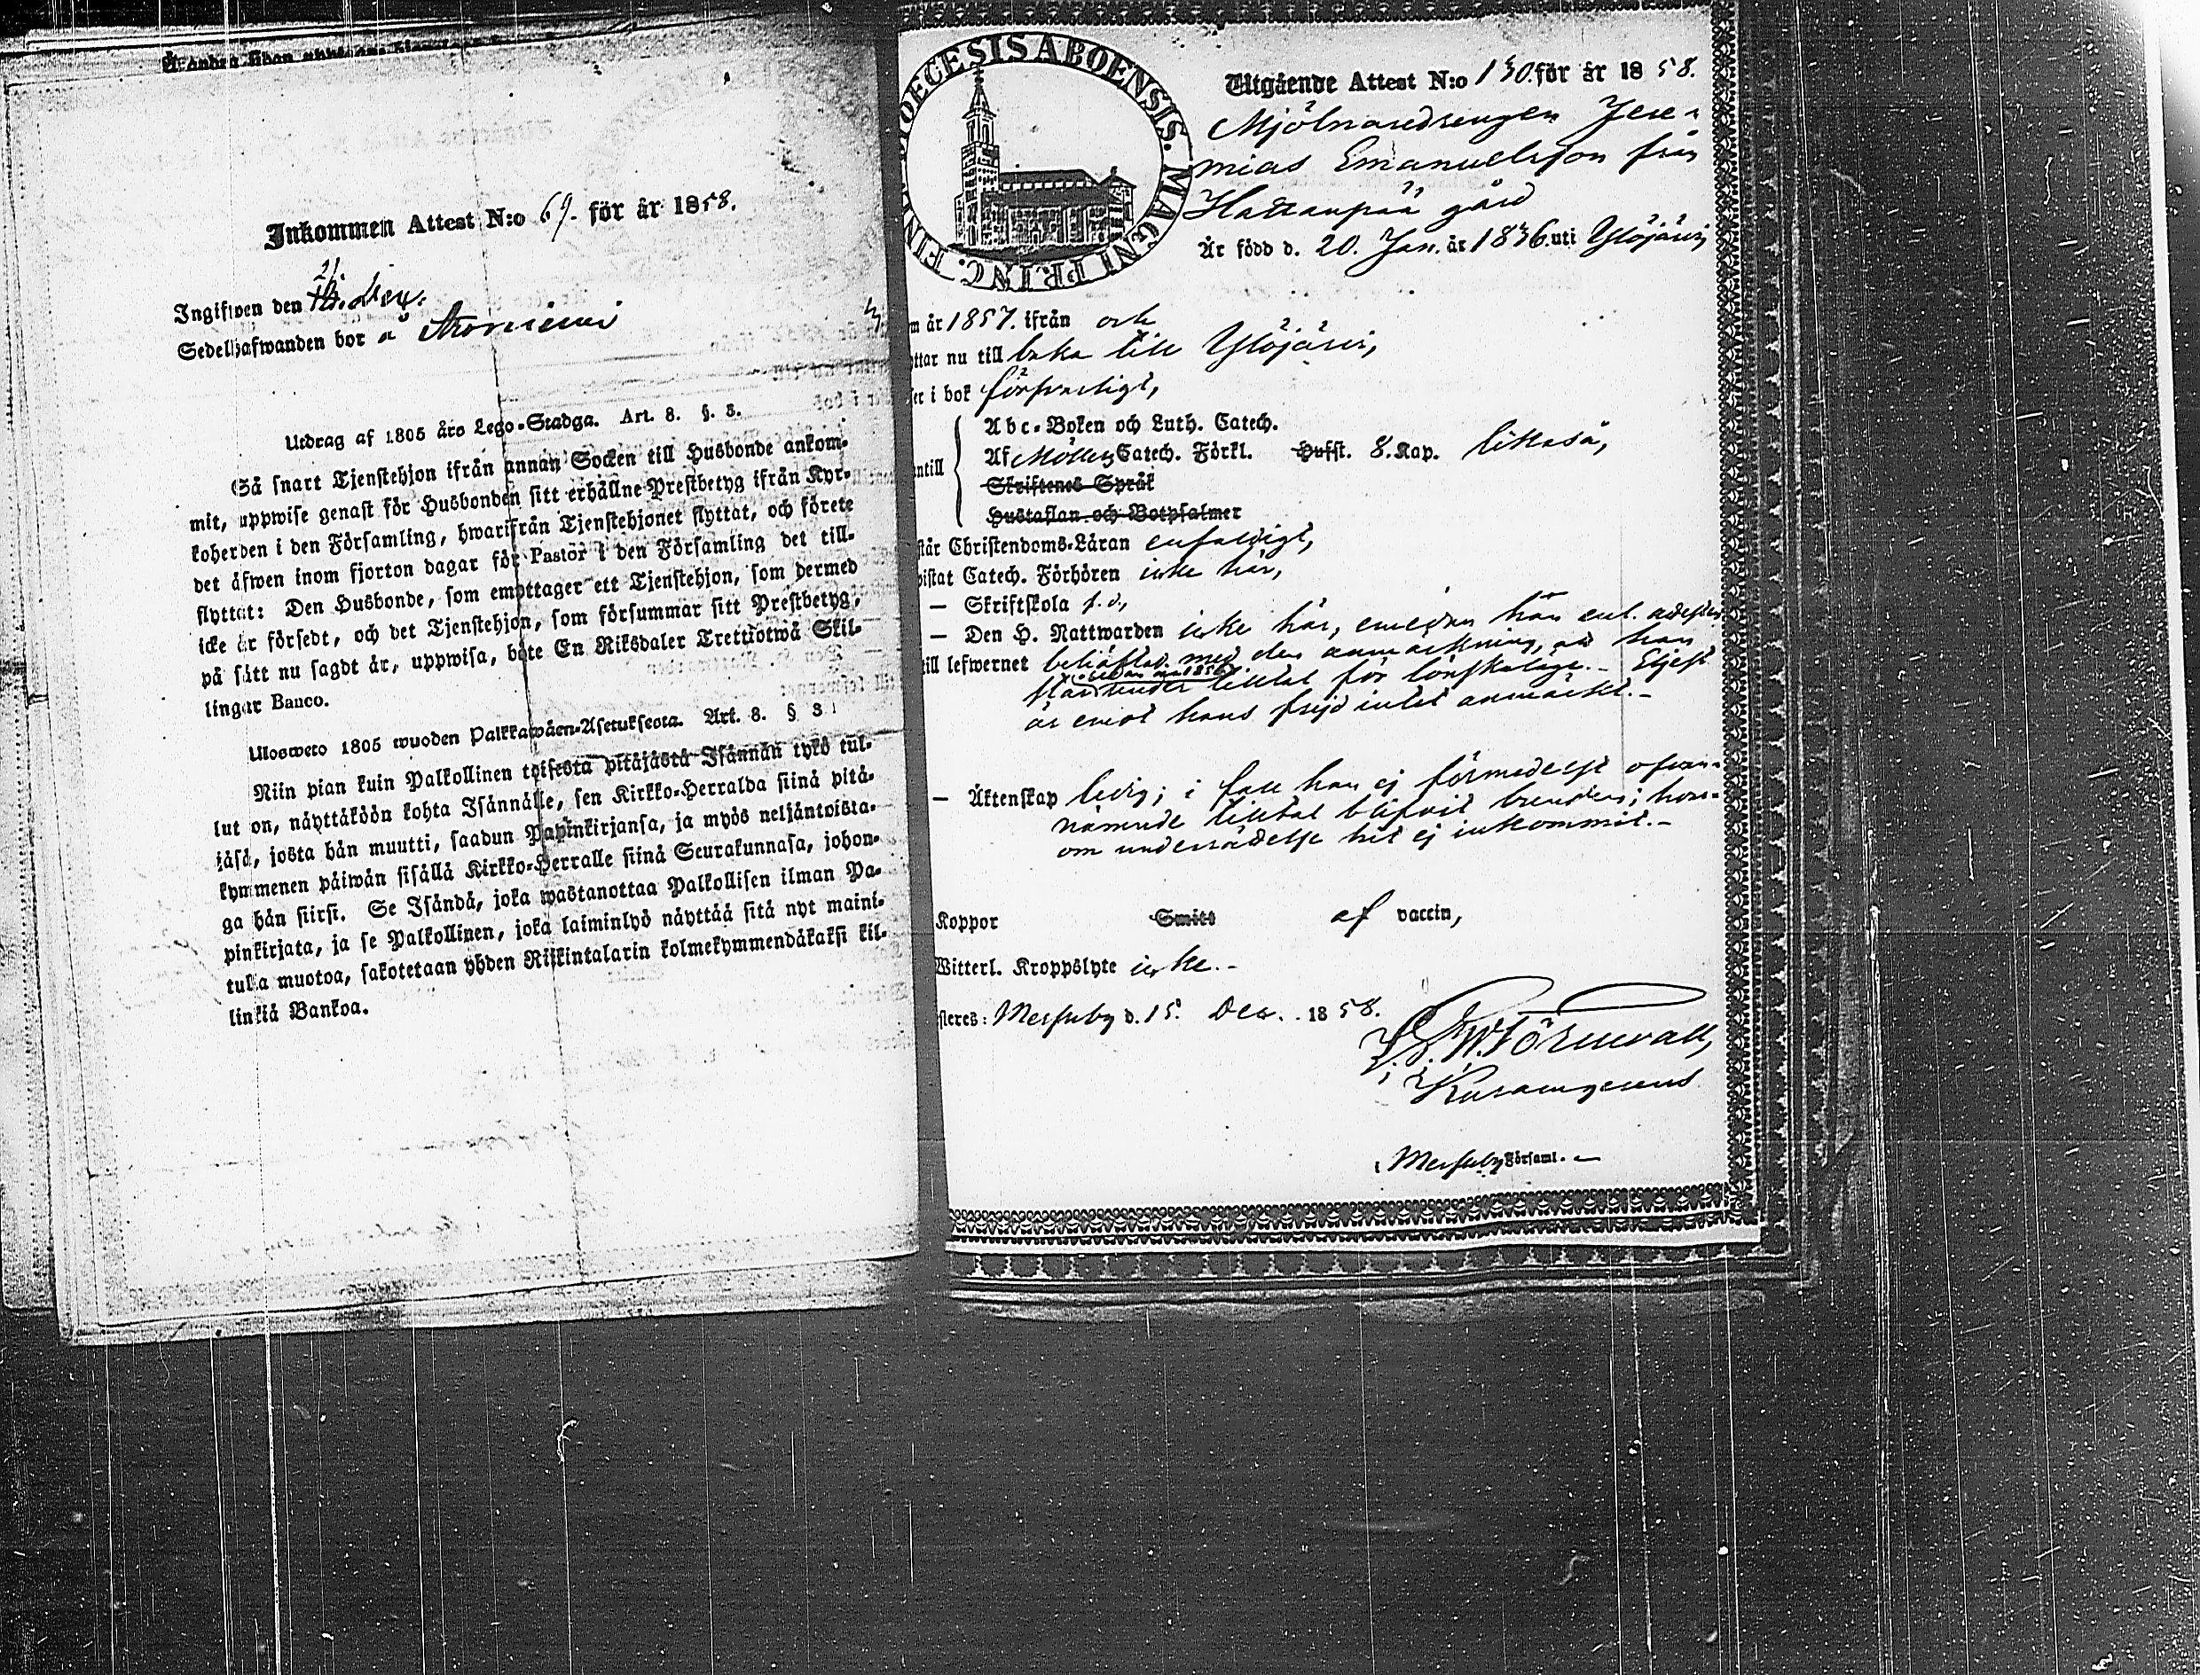 Inkommen Attest N:o 69. för år 1858.
Ingifwen den 21
Sedelhafwanden bor å
Utdrag af 1805 års Lego-Stadga. Art. 8. §. 3.
Så snart Tjenstehjon ifrån annan Socken till Husbonde ankom-
mit, uppwise genast för Husbonden sitt erhållne Prestbetyg ifrån Kyr-
koherden i den Församling, hwarifrån Tjenstehjonet flyttat, och förete
det äfwen inom fjorton dagar för Pastor i den Församling det till-
flyttat: Den Husbonde, som emottager ett Tjenstehjon, som dermed
icke är försedt, och det Tjenstehjon, som försummar sitt Prestbetyg,
på sätt nu sagdt är, uppwisa, böte En Riksdaler Trettiotwå Skil-
lingar Banco.
Ulosweto 1805 wuoden Palkkawäen-Asetuksesta. Art. 8. § 3
Niin pian kuin Palkollinen toisesta pitäjästä Isännän tykö tul-
lut on, näyttäköön kohta Isännälle, sen Kirkko-Herralda siinä pitä-
jäsä, josta hän muutti, saadun Papinkirjansa, ja myös neljäntoista-
kymmenen päiwän sisällä Kirkko-Herralle siinä Seurakunnasa, johon-
ga hän siirsi. Se Isändä, joka wastanottaa Palkollisen ilman Pa-
pinkirjata, ja se Palkollinen, joka laiminlyö näyttää sitä nyt maini-
tulla muotoa, sakotetaan yhden Riikintalarin kolmekymmendäkaksi kil-
linkiä Bankoa.
DIOECESIS ABOENSIS. MAGNI PRINC. FINL.
Utgående Attest N:o 130. för år 1858.
Mjölnaredrengen Jere-
mias Emanuelsson från
Hattanpää gård
Är född d. 20. Jan. år 1836. uti Ylöjärvi,
m år 1857. ifrån och
ttar nu till baka till Ylöjärvi,
er i bok försvarligt,
Abc-Boken och Luth. Catech.
ntill Af Möllers Catech. Förkl. Hufst. 8. Kap. likaså,
Skriftenes Språk
Hustaflan och Botpsalmer
står Christendoms-Läran enfaldigt,
wistat Catech. Förhören icke här,
— Skriftskola f. d.,
— Den H. Nattwarden icke här, emedan han enl. attesten
till lefwernet behäftad med den anmärkning, att han
sedan 1856
står under tilltal för lönskaläge. - Eljest
är emot hans frejd intet anmärkt. -
— Äktenskap ledig; i fall han ej förmedelst ofvan-
nämnde tilltal blifvit bunden; hvar-
om underrättelse hit ej inkommit. -
Koppor Smitt af vaccin,
Witterl. Kroppslyte icke. -
steres: Messuby d. 15. Dec. 1858.
Törnwall,
Messuby Församl.